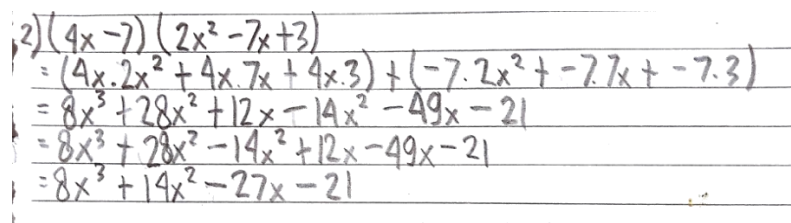 2) (4x-7) (2x² -7x+3)
= (4x.2x² + 4x.7x + 4x.3) + (-7.2x² + -7.7x + -7.3)
= 8x³ + 28x² + 12x - 14x² - 49x - 21
= 8x³ + 28x² - 14x² + 12x - 49x - 21
= 8x³ + 14x² - 27x - 21